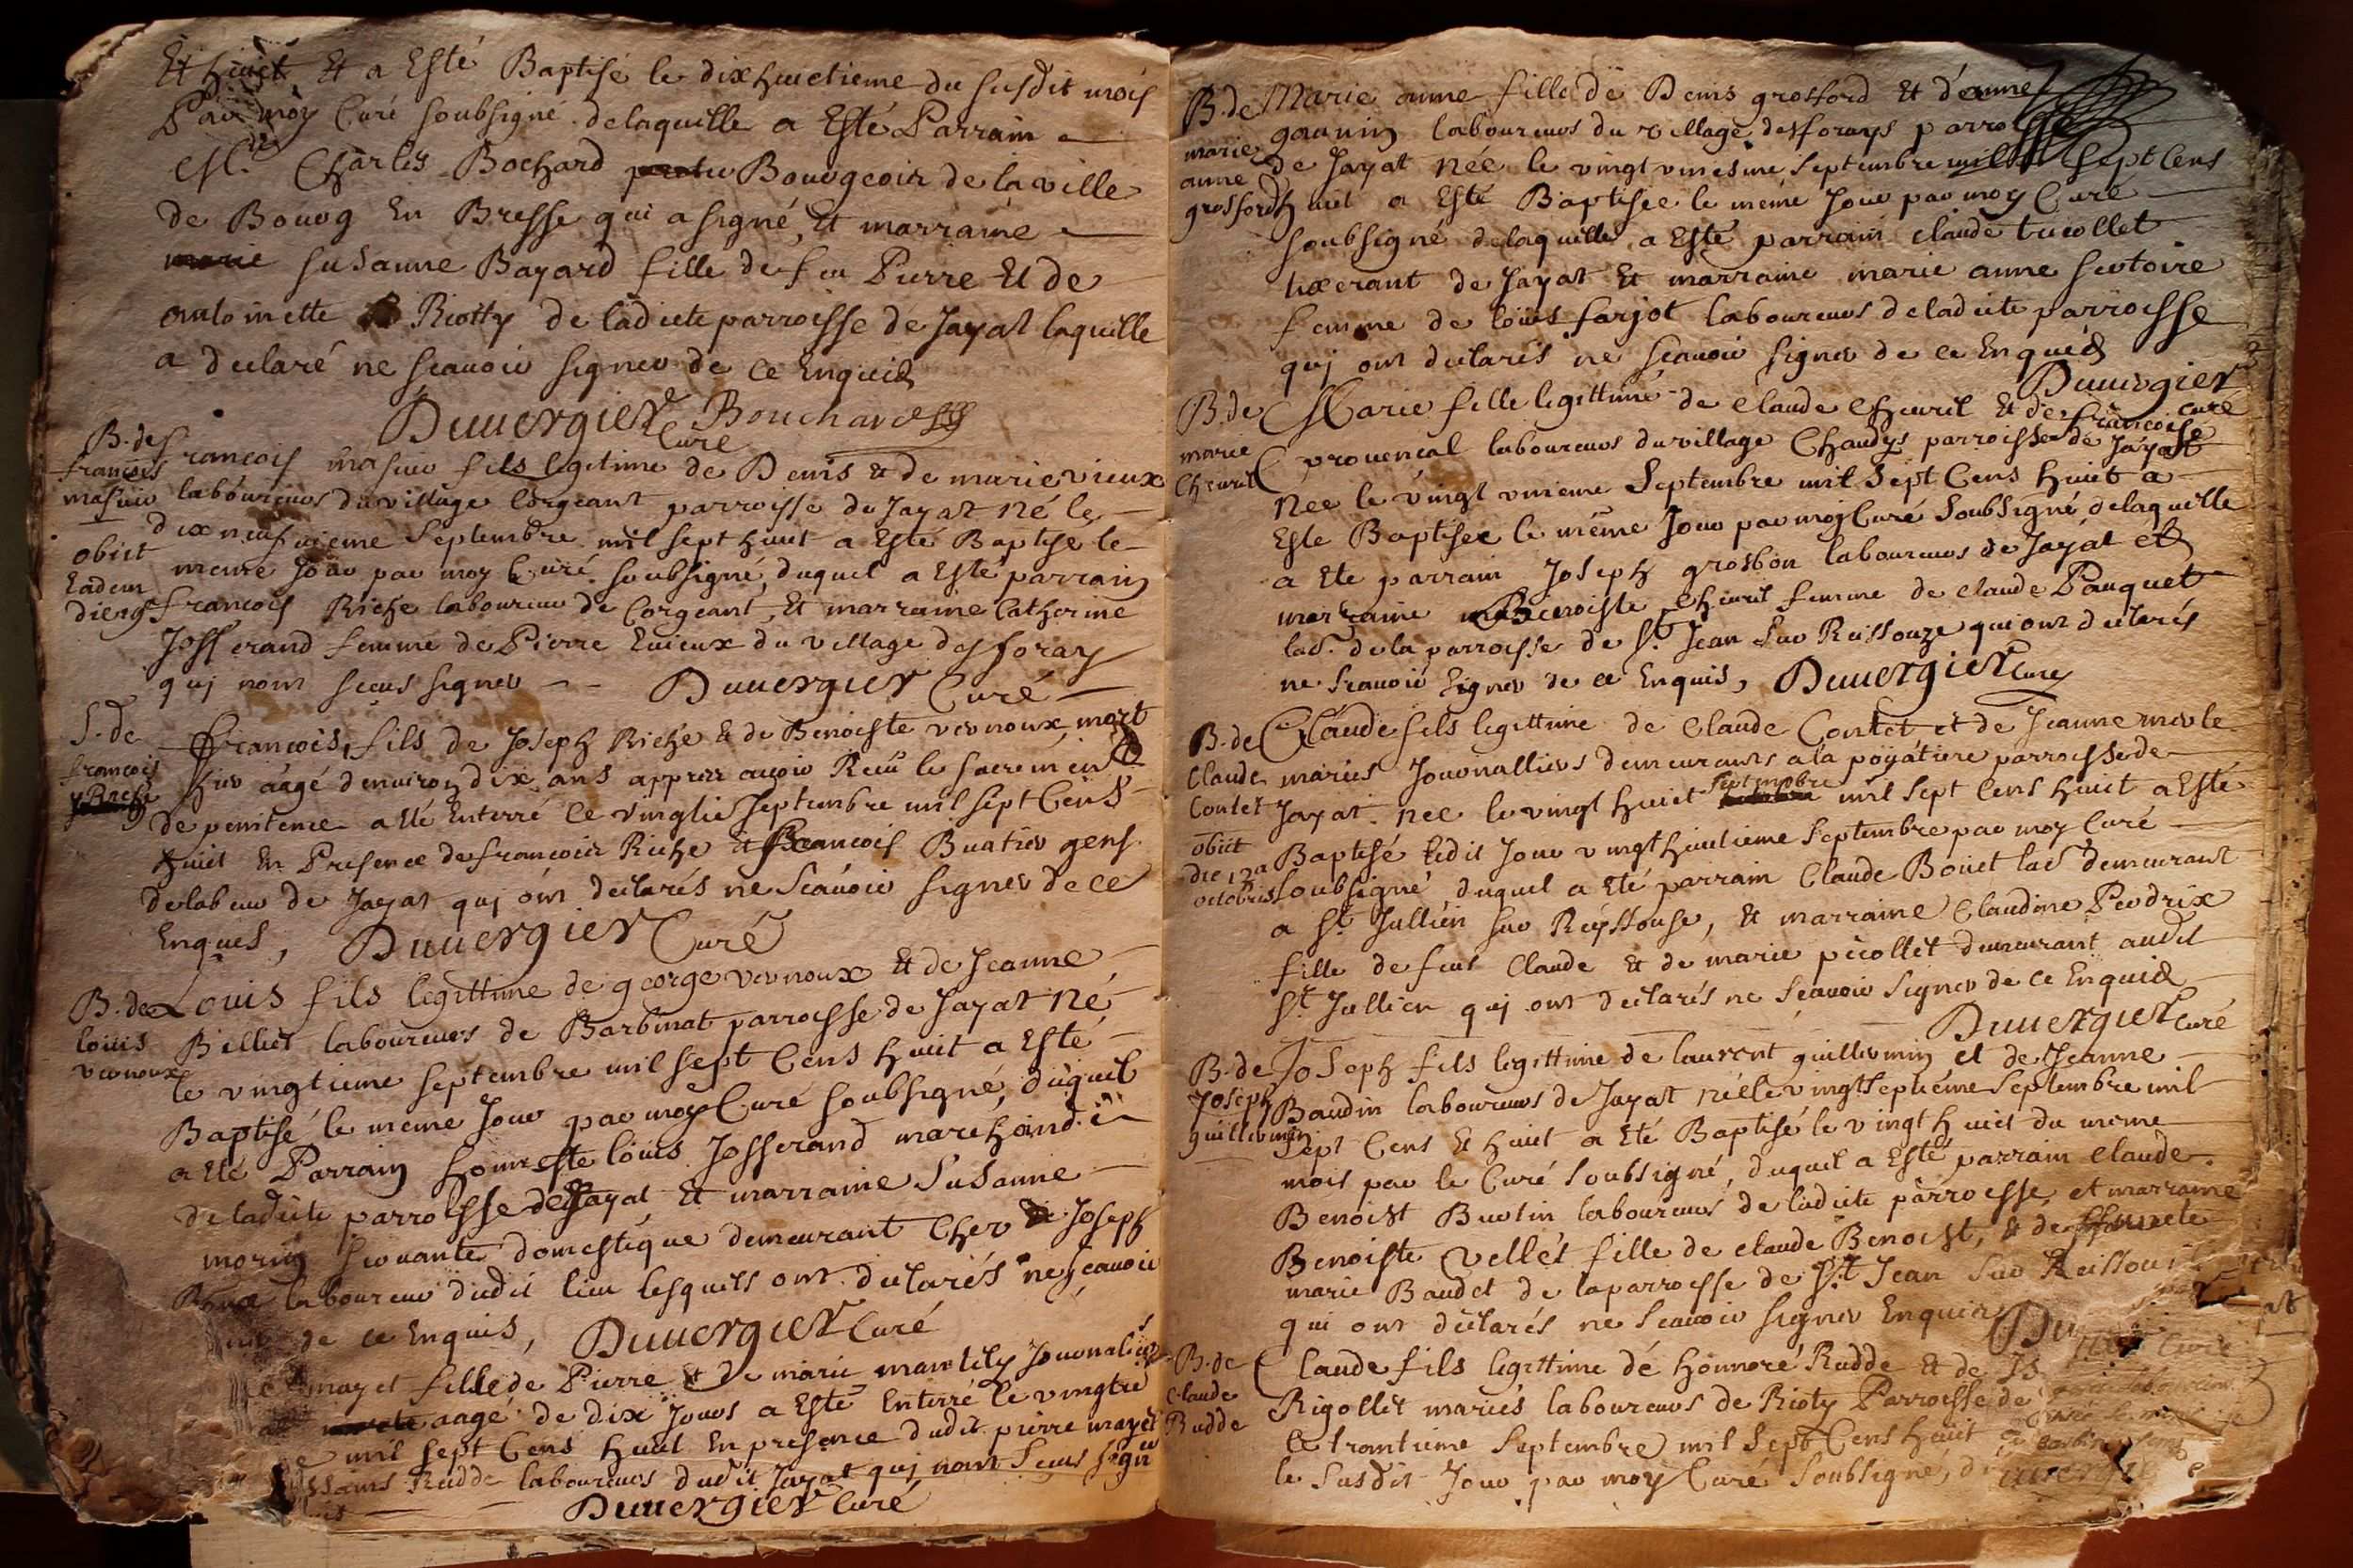 Et huict Et a Esté Baptisé le dixhuictieme du susdit mois
Par moy Curé soubsigné delaquelle a Esté Parrain
Mr. Charles Bochard Bourgeois de la ville
de Bourg En Bresse qui a signé, Et marraine
marie susanne Bayard fille de feu Pierre Et de
antoinette Riotty de ladicte parroisse de Jayat laquelle
a declaré ne scauoir signer de ce Enquis
Duuergier Curé Bouchard
B. de francois masuir fils legitime de Denis & de marie vieux
francois
masuir laboureurs du village Corgeant parroisse de Jayat né le
dix neufuieme Septembre mil sept huict a Esté Baptisé le
obiit
Eadem
die
meme Jour par moy Curé soubsigné, duquel a Esté parrain
francois Riche laboureur de Corgeant, Et marraine Catherine
Josserand femme de Pierre Euieux du village des foray
qui nont sceus signer Duuergier Curé
S. de
francois
francois, fils de Joseph Riche & de Benoiste vernoux, mort
hier aagé denuiron dix ans appres auoir Receu le sacrement
de penitence a eté Enterré ce vingtie Septembre mil sept Cens
huict En Presence de francois Riche et francois Buatier gens
delabeur de Jayat quj ont declarés ne Scauoir signer de ce
Enquis, Duuergier Curé
B. de Louis fils legittime de george vernoux Et de Jeanne
louis
vernoux
Billiet laboureurs de Barbinat parroisse de Jayat Né
le vingtieme septembre mil sept Cens huict a Esté
Baptisé le meme Jour par moy Curé soubsigné, duquel
a eté Parrain honneste louis Josserand marchand
de ladicte parroisse de Jayat Et marraine Susanne
morin seruante domestique demeurant Cher Joseph
laboureur dudit lieu lesquels ont declarés ne scauoir
de ce Enquis, Duuergier Curé
mayet fille de Pierre & de marie mantily Journaliers
aagé de dix Jours a Esté Enterré le vingtre
mil sept Cens huict En presence dudit pierre mayet
Rudde laboureurs dudit Jayat quj nont Sceus sign
Duuergier Curé
B. de
marie
anne
grosford
Marie anne fille de Denis grosford Et d'anne
gaunin laboureurs du village des forays parroisse
de Jayat née le vingt vniesme septembre mil sept Cens
huict a Esté Baptisee le méme Jour par moy Curé
soubsigné delaquelle a Esté parrain claude tricollet
tixerant de Jayat Et marraine marie anne sertoire
femme de loüis farjot laboureurs deladicte parroisse
quj ont declarés ne scauoir signer de ce Enquis
Duuergier Curé
B. de
marie
Cheuril
Marie fille legittime de claude Cheuril Et de francoise
prouencal laboureurs du village Chaudys parroisse de Jayat
née le vingt vnieme Septembre mil Sept Cens huict a
Este Baptisee le même Jour par moy Curé Soubsigné delaquelle
a Ete parrain Joseph grosbon laboureurs de Jayat et
marraine Benoiste Cheuril femme de claude Pauquet
lad. de la parroisse de St. Jean Sur Reissouze qui ont declarés
ne scauoir signer de ce Enquis, Duuergier Curé
B. de
Claude
Contet
obiit
die 12a
octobris
Claude fils legittime de Claude Contet et de Jeanne merle
mariés Journalliers demeurants a la poyatiere parroisse de
Septembre
Jayat. nee le vingt huict mil sept Cens huict a Esté
Baptisé ledit Jour vingt huictieme Septembre par moy Curé
Soubsigné duquel a Eté parrain Claude Bouet lad demeurant
a St. Jullien sur Reyssouse, Et marraine Claudine Perdrix
fille de feus Claude Et de marie picollet demeurant audit
St. Jullien quj ont declarés ne Scauoir signer de ce Enquis
Duuergier Curé
B. de
Joseph
guillermin
JoSeph fils legittime de laurent guillermin et de Jeanne
Baudin laboureurs de Jayat né le vingtSeptième Septembre mil
Sept Cens Et huict a Eté Baptisé le vingt huict du meme
mois par le Curé Soubsigné, duquel a Esté parrain claude
Benoist Buctin laboureurs de ladicte parroesse et marraine
Benoiste Vellet fille de claude Benoist, & de
marie Baudet de laparroesse de St Jean Sur Reissou
qui ont declarés ne scauoir signer Enquis Du
Curé
B. de
Claude
Rudde
Claude fils legittime dé honnoré Rudde Et de
Rigollet mariés laboureurs de Rioty Parroesse de
le trantieme Septembre mil Sept Cens huict
le Susdit Jour par moy Curé Soubsigné,